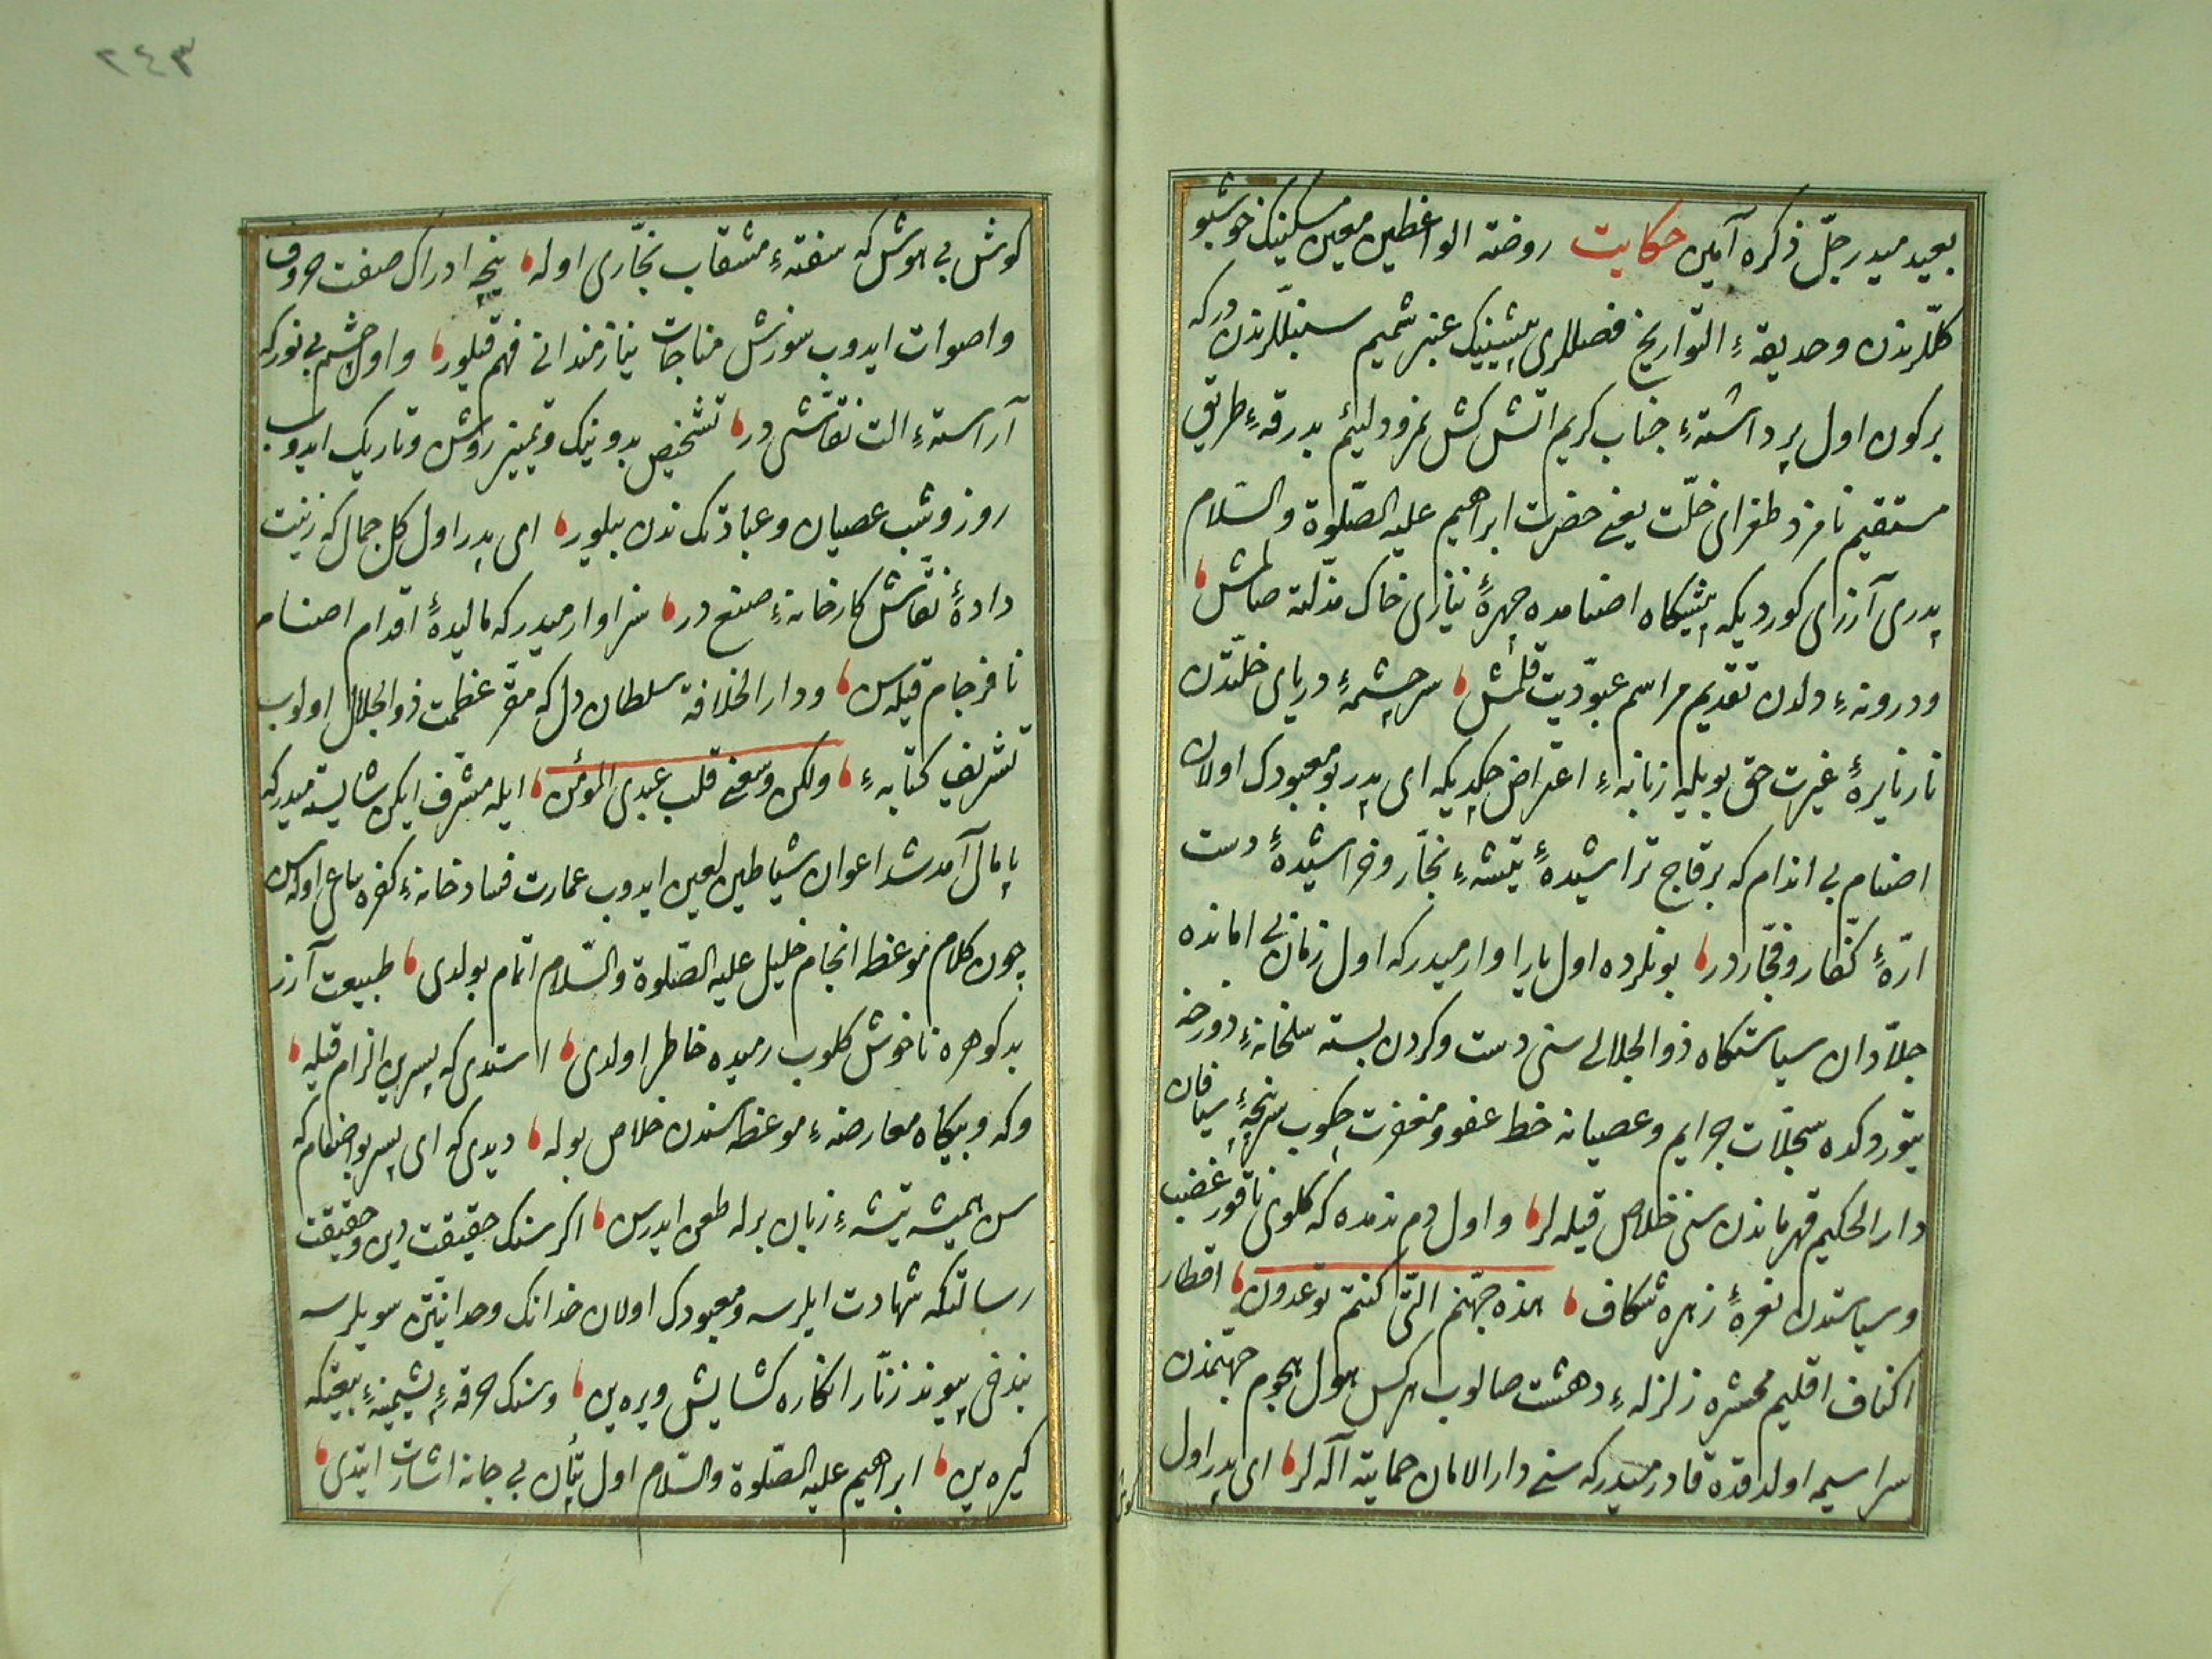 بعيد ميدر جلّ ذكره آمين حكايت روضة الواعظين معين مسكينك خوشبو
كلّرندن وحديقهٔ التواريخ فصللرى بيشينك عنبر شميم سنبللرندن در كه
بر كون اول پرداشتهٔ جناب كريم اتش كش نمرود لئيم بدرقهٔ طريق
مستقيم نامزد طغراى خلّت يعنى حضرت ابراهيم عليه الصّلوة والسّلام
پدرى آزرى كورديكه پيشكاه اصنامده چهرهٔ نيازى خاك مذلّته صالمش
ودرونهٔ دلدن تقديم مراسم عبوديّت قلمش سرچشمهٔ درياى خلّتدن
نار نايرهٔ غيرت حق بويله زبانهٔ اعتراض چكديكه اى پدر بو معبودك اولان
اصنام بى اندام كه بر قاج تراشيدهٔ تيشهٔ نجّار وخراشيدهٔ دست
ارّهٔ كفّار وفجّاردر بونلرده اول يارا وارميدر كه اول زمان بى امانده
جلّادان سياستكاه ذو الجلالى سنى دست وكردن بسته سلخانهٔ دوزخه
يتوردكده سجلّات جرايم وعصيانه خط عفو ومغفرت چكوب سرپنجهٔ سيافان
دار الحكيم قهرماندن سنى خلاص قيله لر واول دم ندمده كه كلوى ناقور غضب
وسياستدن نعرهٔ زهره شكاف هذه جهنّم الّتى كنتم توعدون اقطار
اكناف اقليم محشره زلزلهٔ دهشت صالوب هركس هول هجوم جهنّمدن
سراسيمه اولدقده قادر ميدر كه سنى دار الامان حمايته آله لر اى پدر اول
كوش
٢٤٣
كوش بى هوش كه سفتهٔ مثقاب نجّارى اوله نيجه ادراك صفت حروف
واصوات ايدوب سوزش مناجات نيازمندانى فهم قيلور واول چشم بى نور كه
آراستهٔ الت نقّاشى در تشخيص بد ونيك وتمييز روشن وتاريك ايدوب
روز وشب عصيان وعبادتك ندن بيلور اى پدر اول كل جمال كه زينت
دادهٔ نقّاش كارخانهٔ صنع در سزاوار ميدر كه ماليدهٔ اقدام اصنام
نافرجام قيله سن ودار الخلافهٔ سلطان دل كه مقرّ عظمت ذو الجلال اولوب
تشريف كتابهٔ ولكن وسعنى قلب عبدى المؤمن ايله مشرّف ايكن شايسته ميدر كه
پامال آمد شد اعوان شياطين لعين ايدوب عمارت فساد خانهٔ كفره ساعى اوله سن
چون كلام موعظه انجام خليل عليه الصّلوة والسّلام اتمام بولدى طبيعت آزر
بدكوهره ناخوش كلوب رميده خاطر اولدى استدى كه پسرين الزام قيله
وكه وبيكاه معارضهٔ موعظه سندن خلاص بوله ديدى كه اى پسر بو اصنام كه
سن هميشه تيشهٔ زبان برله طعن ايدرسن اكر سنك حقيقت دين وحقيقت
رسالتكه شهادت ايلرسه ومعبودك اولان خدانك وحدانيتن سويلرسه
بند فى پيوند زنّار انكاره كشايش ويره ين وسنك خرقهٔ پشمينهٔ بيعتكه
كيره ين ابراهيم عليه الصّلوة والسّلام اول بتان بى جانه اشارت ايتدى